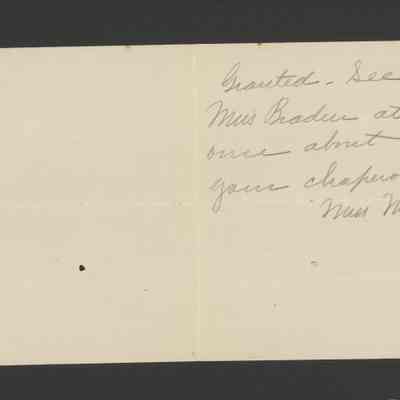 Granted - See
Miss Braden at
once about
your chapero
Miss M